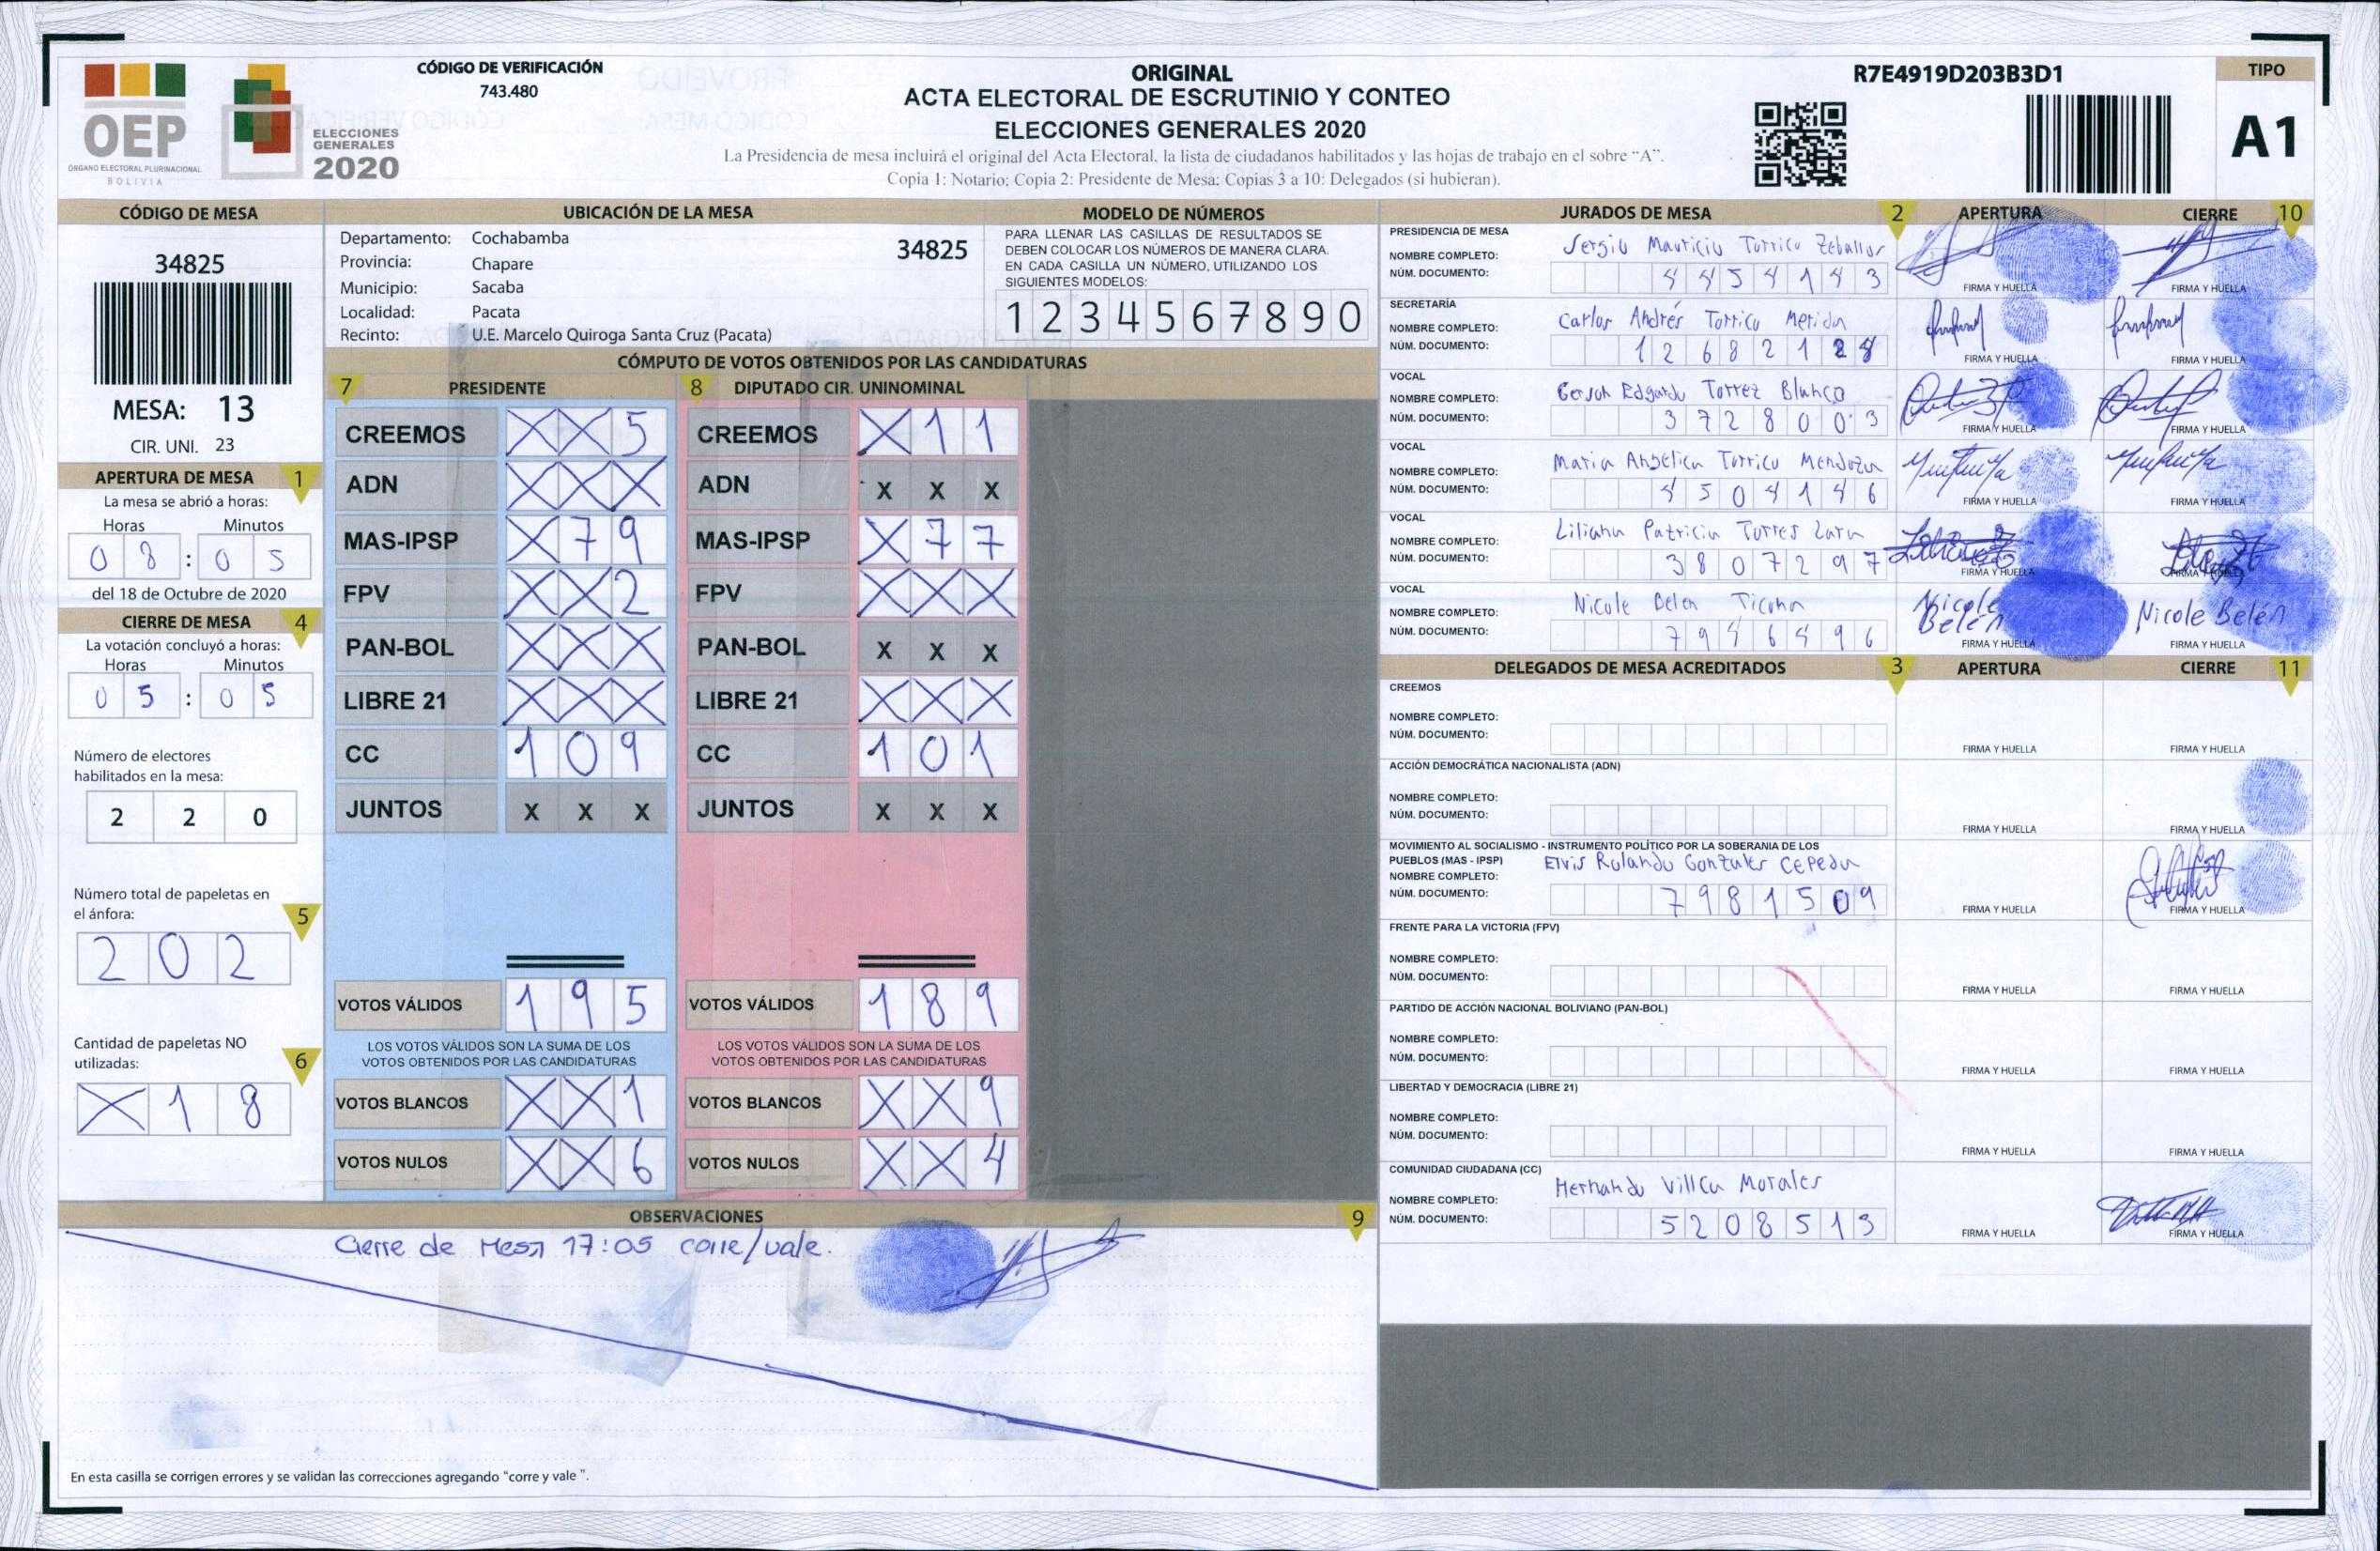 OEP
ÓRGANO ELECTORAL PLURINACIONAL
BOLIVIA
ELECCIONES
GENERALES
2020
CÓDIGO DE VERIFICACIÓN
743.480
ORIGINAL
ACTA ELECTORAL DE ESCRUTINIO Y CONTEO
ELECCIONES GENERALES 2020
La Presidencia de mesa incluirá el original del Acta Electoral, la lista de ciudadanos habilitados y las hojas de trabajo en el sobre “A”.
Copia 1: Notario; Copia 2: Presidente de Mesa; Copias 3 a 10: Delegados (si hubieran).
R7E4919D203B3D1
TIPO
A1
CÓDIGO DE MESA
34825
MESA: 13
CIR. UNI. 23
APERTURA DE MESA 1
La mesa se abrió a horas:
Horas Minutos
08 : 05
del 18 de Octubre de 2020
CIERRE DE MESA 4
La votación concluyó a horas:
Horas Minutos
05 : 05
Número de electores
habilitados en la mesa:
2 2 0
Número total de papeletas en
el ánfora: 5
2 0 2
Cantidad de papeletas NO
utilizadas: 6
X 1 8
UBICACIÓN DE LA MESA
Departamento: Cochabamba 34825
Provincia: Chapare
Municipio: Sacaba
Localidad: Pacata
Recinto: U.E. Marcelo Quiroga Santa Cruz (Pacata)
MODELO DE NÚMEROS
PARA LLENAR LAS CASILLAS DE RESULTADOS SE
DEBEN COLOCAR LOS NÚMEROS DE MANERA CLARA.
EN CADA CASILLA UN NÚMERO, UTILIZANDO LOS
SIGUIENTES MODELOS:
1 2 3 4 5 6 7 8 9 0
CÓMPUTO DE VOTOS OBTENIDOS POR LAS CANDIDATURAS
7 PRESIDENTE 8 DIPUTADO CIR. UNINOMINAL
CREEMOS X X 5 CREEMOS X 1 1
ADN X X X ADN X X X
MAS-IPSP X 7 9 MAS-IPSP X 7 7
FPV X X 2 FPV X X X
PAN-BOL X X X PAN-BOL X X X
LIBRE 21 X X X LIBRE 21 X X X
CC 1 0 9 CC 1 0 1
JUNTOS X X X JUNTOS X X X
VOTOS VÁLIDOS 1 9 5 VOTOS VÁLIDOS 1 8 9
LOS VOTOS VÁLIDOS SON LA SUMA DE LOS LOS VOTOS VÁLIDOS SON LA SUMA DE LOS
VOTOS OBTENIDOS POR LAS CANDIDATURAS VOTOS OBTENIDOS POR LAS CANDIDATURAS
VOTOS BLANCOS X X 1 VOTOS BLANCOS X X 9
VOTOS NULOS X X 6 VOTOS NULOS X X 4
OBSERVACIONES 9
Cierre de Mesa 17:05 corre/vale.
En esta casilla se corrigen errores y se validan las correcciones agregando "corre y vale ".
JURADOS DE MESA 2 APERTURA CIERRE 10
PRESIDENCIA DE MESA
NOMBRE COMPLETO: Sergio Mauricio Torrico Zeballos
NÚM. DOCUMENTO: 4454143
FIRMA Y HUELLA FIRMA Y HUELLA
SECRETARÍA
NOMBRE COMPLETO: Carlos Andrés Torrico Merida
NÚM. DOCUMENTO:
FIRMA Y HUELLA FIRMA Y HUELLA
VOCAL
NOMBRE COMPLETO: Gerson Edgardo Torrez Blanco
NÚM. DOCUMENTO: 3728003
FIRMA Y HUELLA FIRMA Y HUELLA
VOCAL
NOMBRE COMPLETO: Maria Angelica Torrico Mendoza
NÚM. DOCUMENTO: 4504146
FIRMA Y HUELLA FIRMA Y HUELLA
VOCAL
NOMBRE COMPLETO: Liliana Patricia Torres Lara
NÚM. DOCUMENTO: 3807297
FIRMA Y HUELLA FIRMA Y HUELLA
VOCAL
NOMBRE COMPLETO: Nicole Belen Ticona
NÚM. DOCUMENTO: 7946496
Nicole Belén Nicole Belén
FIRMA Y HUELLA FIRMA Y HUELLA
DELEGADOS DE MESA ACREDITADOS 3 APERTURA CIERRE 11
CREEMOS
NOMBRE COMPLETO:
NÚM. DOCUMENTO:
FIRMA Y HUELLA FIRMA Y HUELLA
ACCIÓN DEMOCRÁTICA NACIONALISTA (ADN)
NOMBRE COMPLETO:
NÚM. DOCUMENTO:
FIRMA Y HUELLA FIRMA Y HUELLA
MOVIMIENTO AL SOCIALISMO - INSTRUMENTO POLÍTICO POR LA SOBERANIA DE LOS
PUEBLOS (MAS - IPSP)
NOMBRE COMPLETO: Elvis Rolando Gonzales Cepeda
NÚM. DOCUMENTO: 7981509
FIRMA Y HUELLA FIRMA Y HUELLA
FRENTE PARA LA VICTORIA (FPV)
NOMBRE COMPLETO:
NÚM. DOCUMENTO:
FIRMA Y HUELLA FIRMA Y HUELLA
PARTIDO DE ACCIÓN NACIONAL BOLIVIANO (PAN-BOL)
NOMBRE COMPLETO:
NÚM. DOCUMENTO:
FIRMA Y HUELLA FIRMA Y HUELLA
LIBERTAD Y DEMOCRACIA (LIBRE 21)
NOMBRE COMPLETO:
NÚM. DOCUMENTO:
FIRMA Y HUELLA FIRMA Y HUELLA
COMUNIDAD CIUDADANA (CC)
NOMBRE COMPLETO: Hernando Villca Morales
NÚM. DOCUMENTO: 5208513
FIRMA Y HUELLA FIRMA Y HUELLA